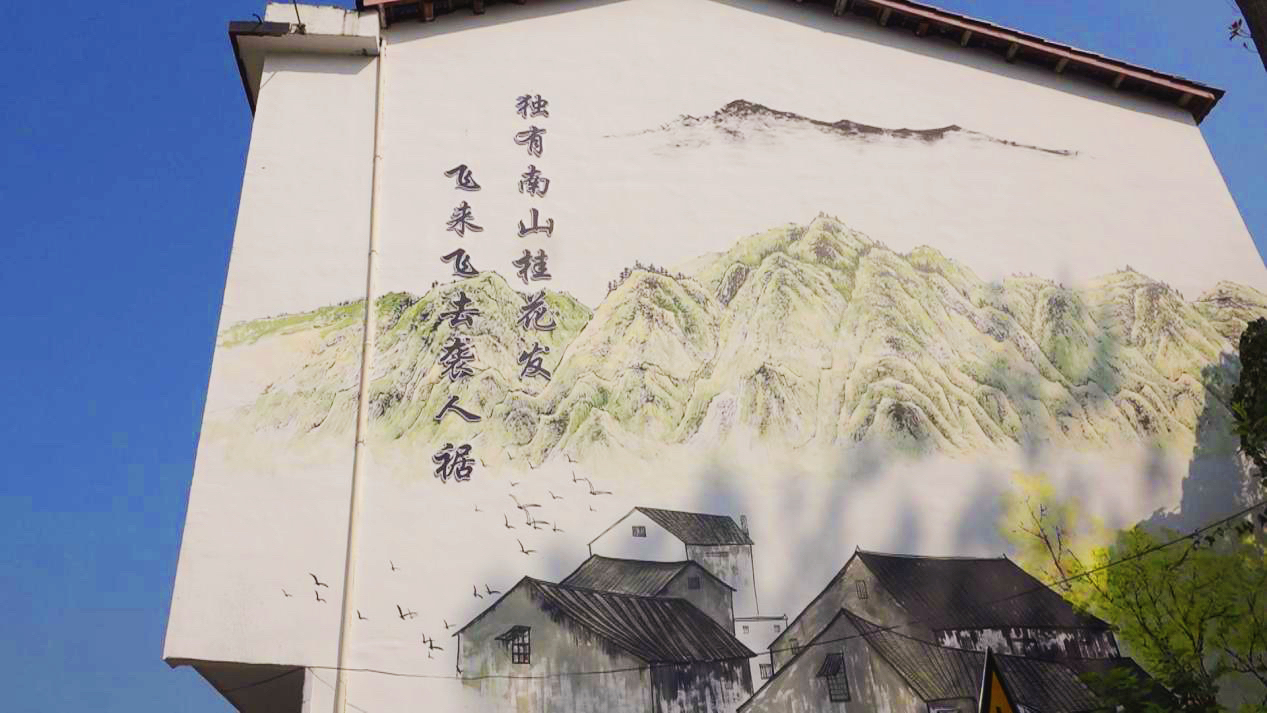 独有南山桂花发
飞来飞去袭人裾